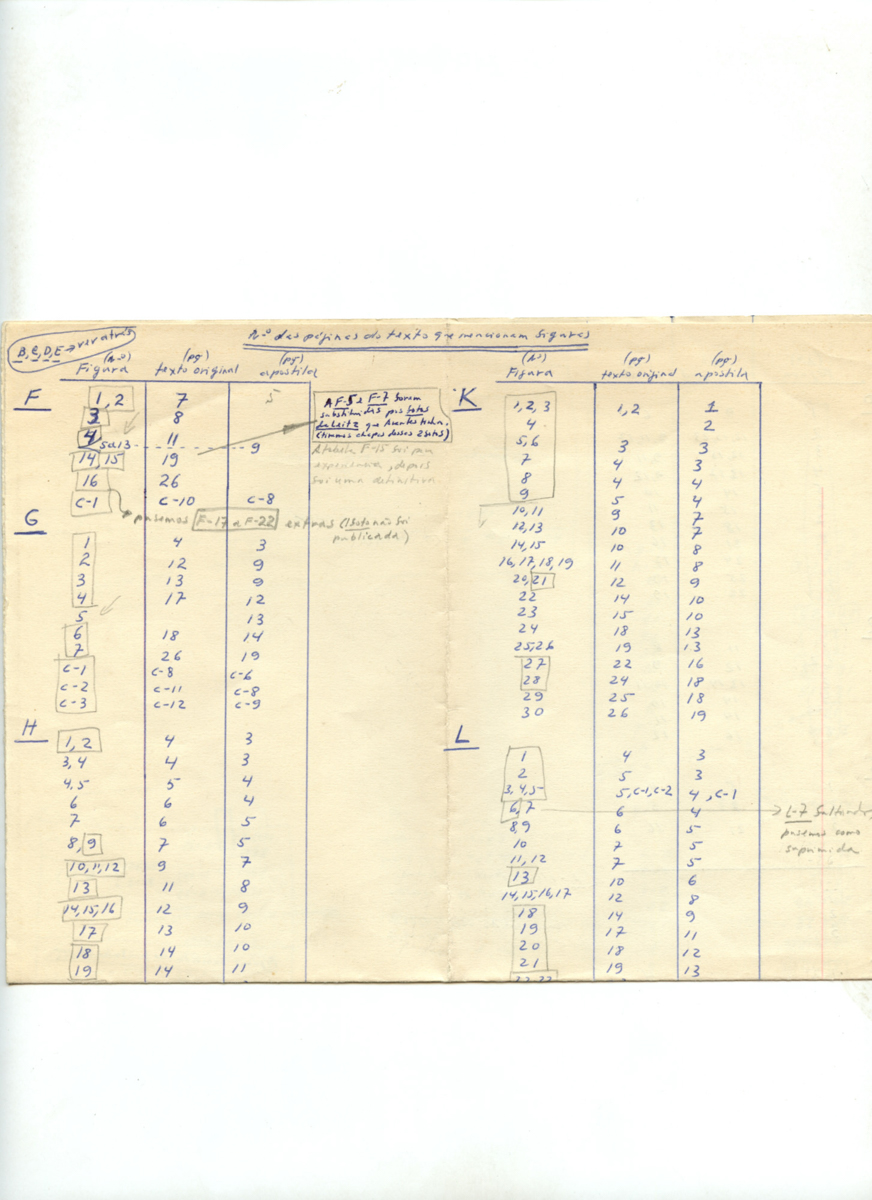 B, C, D, E → ver atrás
N.º das páginas do texto que mencionam figuras
(N.º) (pg) (pg)
Figura texto original apostila
F 1, 2 7 5
3 8
4 11
5 a 13 9
14, 15 19
16 26
C-1 C-10 C-8
A F-5 e F-7 foram
substituidas por fotos
da Leitz que Avertes tinha.
(temos chapas dessas 2 fotos)
A tabela F-15 foi por
experiencia, depois
foi uma definitiva.
pusemos F-17 a F-22 extras (1 foto não foi
publicada)
G
1 4 3
2 12 9
3 13 9
4 17 12
5 13
6 18 14
7 26 19
C-1 C-8 C-6
C-2 C-11 C-8
C-3 C-12 C-9
H
1, 2 4 3
3, 4 4 3
4, 5 5 4
6 6 4
7 6 5
8, 9 7 5
10, 11, 12 9 7
13 11 8
14, 15, 16 12 9
17 13 10
18 14 10
19 14 11
(N.º) (pg) (pg)
Figura texto original apostila
K
1, 2, 3 1, 2 1
4 2
5, 6 3 3
7 4 3
8 4 4
9 5 4
10, 11 9 7
12, 13 10 7
14, 15 10 8
16, 17, 18, 19 11 8
20, 21 12 9
22 14 10
23 15 10
24 18 13
25, 26 19 13
27 22 16
28 24 18
29 25 18
30 26 19
L
1 4 3
2 5 3
3, 4, 5 5, C-1, C-2 4, C-1
6, 7 6 4
L-7 faltando,
pusemos como
suprimida
8, 9 6 5
10 7 5
11, 12 7 5
13 10 6
14, 15, 16, 17 12 8
18 14 9
19 17 11
20 18 12
21 19 13